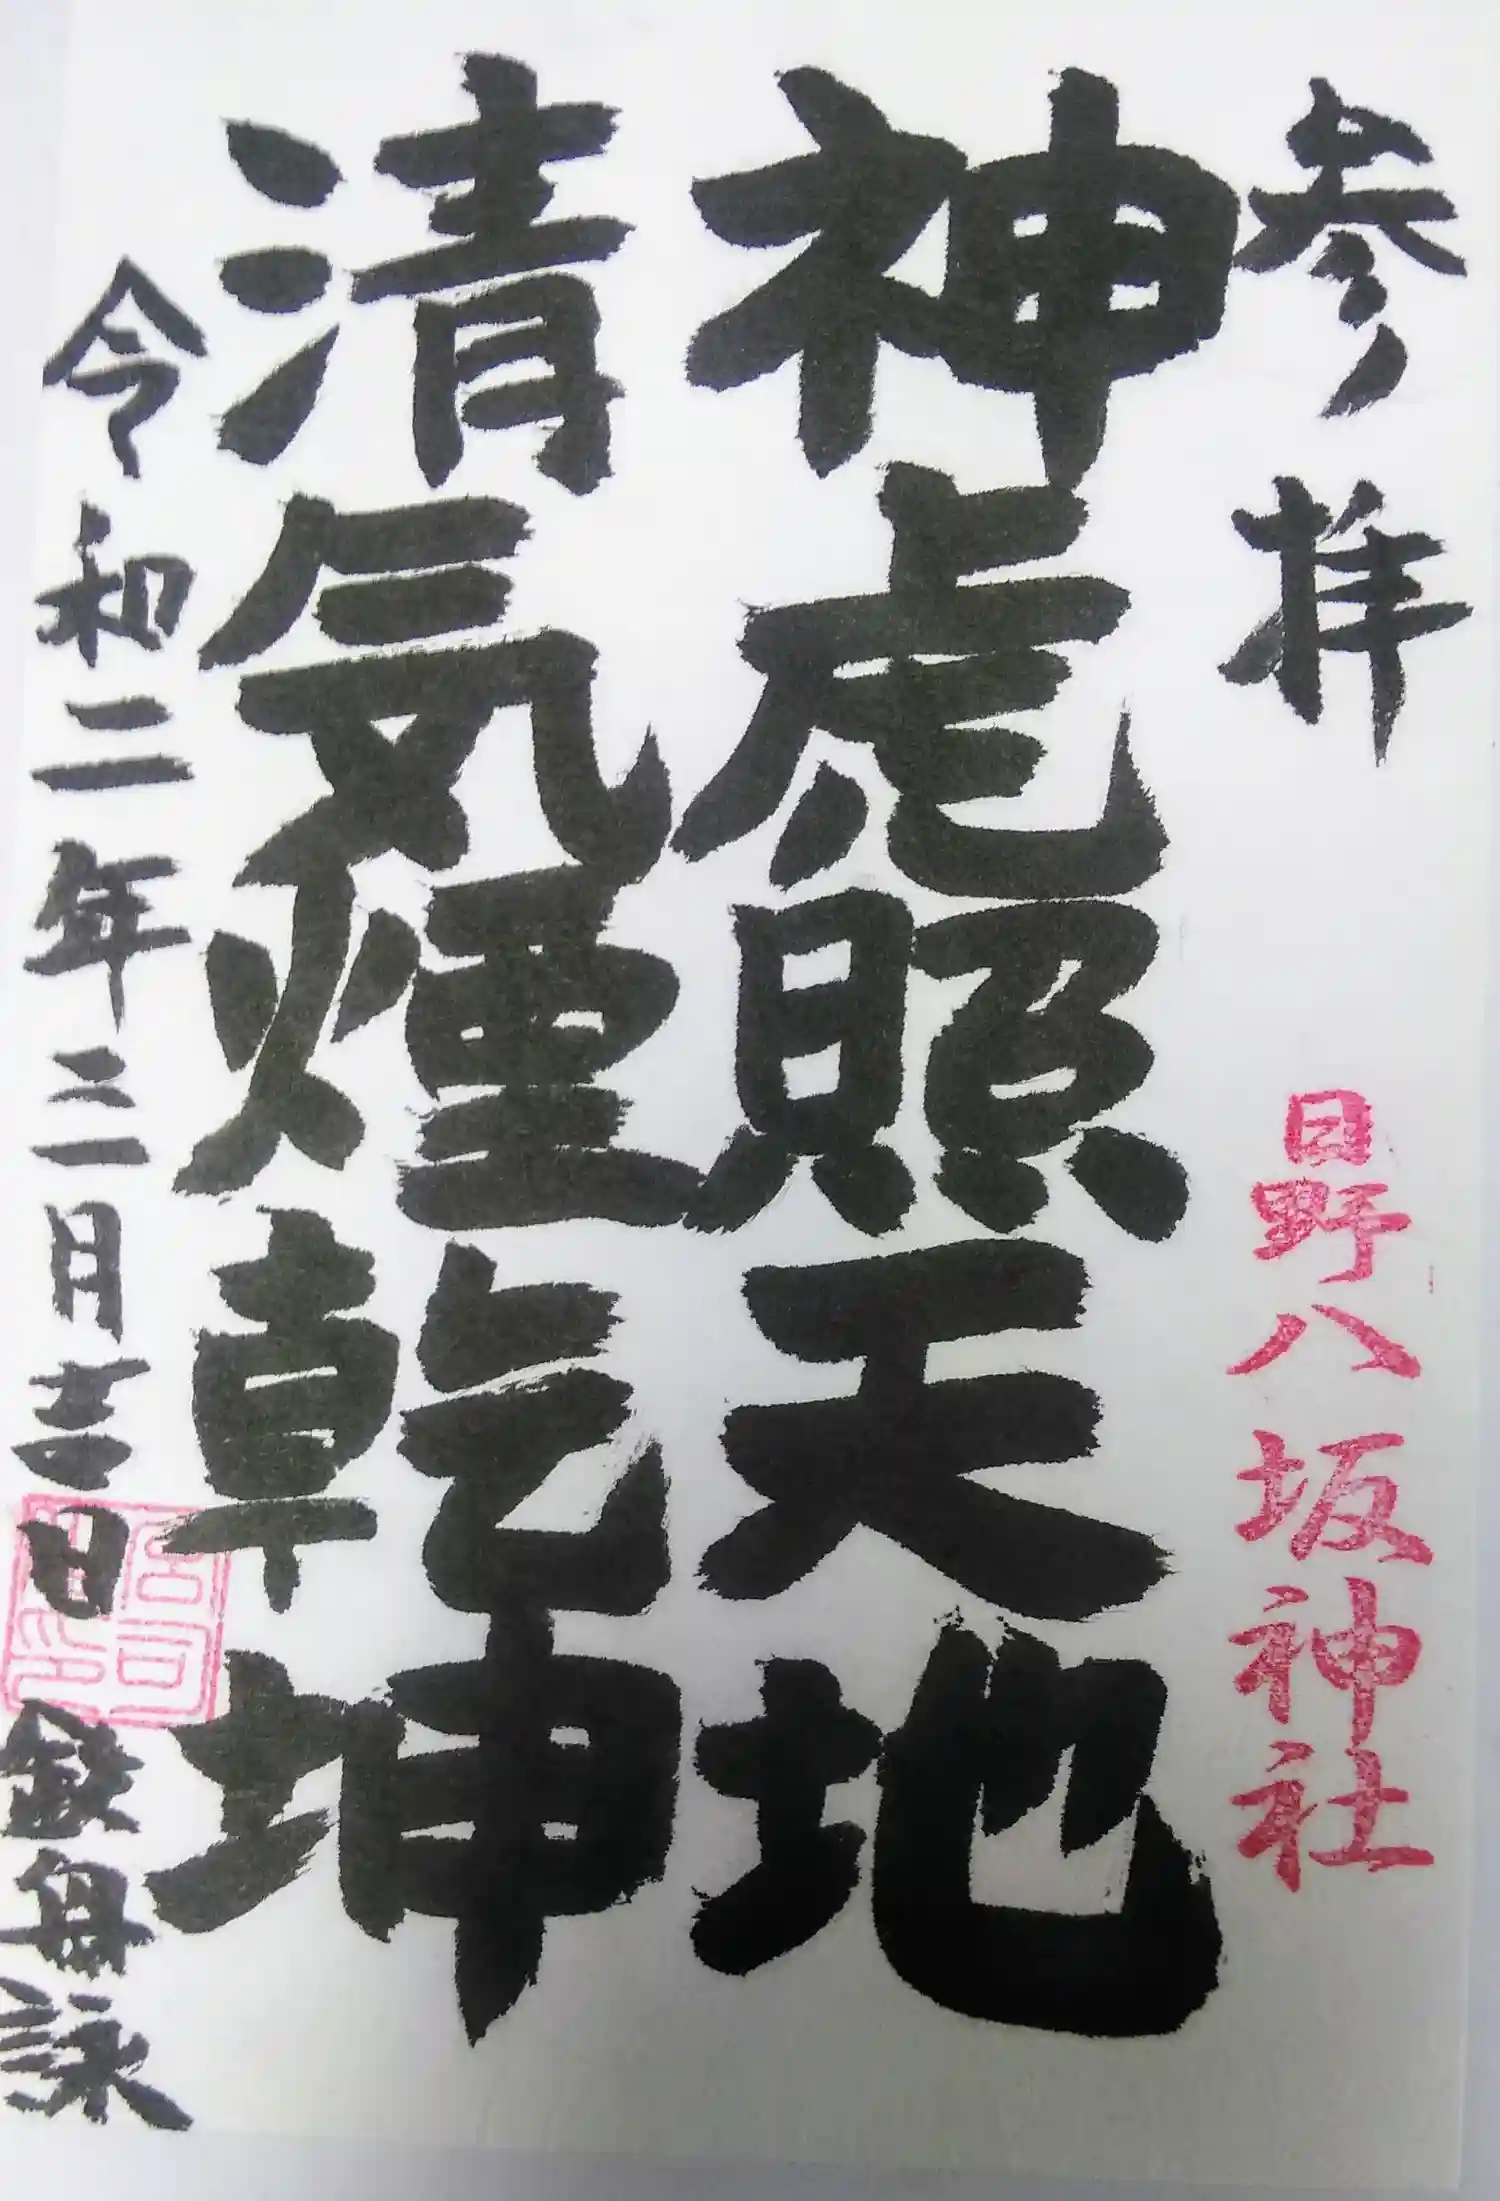 参拝
日野八坂神社
神虎照天地
清気煙乾坤
令和二年三月三日